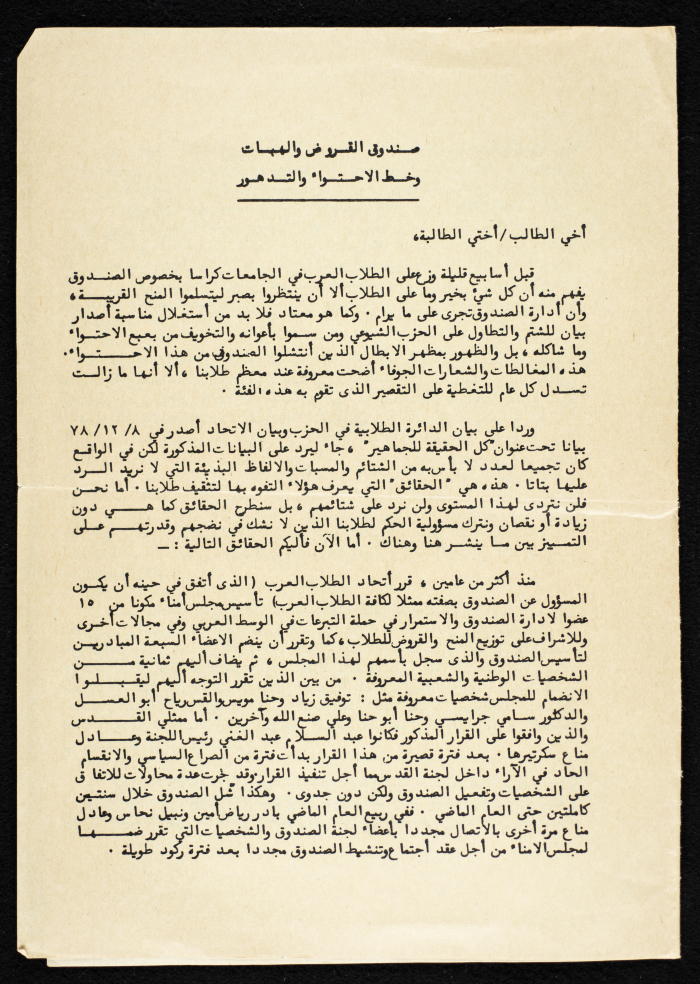 صندوق القروض والهبات
وخط الاحتواء والتدهور
أخي الطالب/أختي الطالبة،
قبل أسابيع قليلة وزع على الطلاب العرب في الجامعات كراسا بخصوص الصندوق
يفهم منه أن كل شيء بخير وما على الطلاب ألا أن ينتظروا بصبر ليتسلموا المنح القريبة،
وأن أدارة الصندوق تجرى على ما يرام . وكما هو معتاد فلا بد من أستغلال مناسبة أصدار
بيان للشتم والتطاول على الحزب الشيوعي ومن سموا بأعوانه والتخويف من بعبع الاحتواء
وما شاكله ، بل والظهور بمظهر الابطال الذين أنتشلوا الصندوق من هذا الاحتواء .
هذه المغالطات والشعارات الجوفاء أضحت معروفة عند معظم طلابنا ، ألا أنها ما زالت
تسدل كل عام للتغطية على التقصير الذى تقوم به هذه الفئة .
وردا على بيان الدائرة الطلابية في الحزب وبيان الاتحاد أصدر في ٨/ ١٢/ ٧٨
بيانا تحت عنوان "كل الحقيقة للجماهير" ، جاء ليرد على البيانات المذكورة لكن في الواقع
كان تجميعا لعدد لا بأس به من الشتائم والمسبات والالفاظ البذيئة التي لا نريد الرد
عليها بتاتا . هذه هي "الحقائق" التي يعرف هؤلاء التفوه بها لتثقيف طلابنا . أما نحن
فلن نتردى لهذا المستوى ولن نرد على شتائمهم ، بل سنطرح الحقائق كما هي دون
زيادة أو نقصان ونترك مسؤولية الحكم لطلابنا الذين لا نشك في نضجهم وقدرتهم على
التمييز بين ما ينشر هنا وهناك . أما الآن فأليكم الحقائق التالية : ـ
منذ أكثر من عامين ، قرر أتحاد الطلاب العرب (الذى أتفق في حينه أن يكون
المسؤول عن الصندوق بصفته ممثلا لكافة الطلاب العرب) تأسيس مجلس أمناء مكونا من ١٥
عضوا لادارة الصندوق والاستمرار في حملة التبرعات في الوسط العربي وفي مجالات أخرى
وللاشراف على توزيع المنح والقروض للطلاب ، كما وتقرر أن ينضم الاعضاء السبعة المبادرين
لتأسيس الصندوق والذى سجل بأسمهم لهذا المجلس ، ثم يضاف أليهم ثمانية من
الشخصيات الوطنية والشعبية المعروفة . من بين الذين تقرر التوجه أليهم ليقبلوا
الانضمام للمجلس شخصيات معروفة مثل : توفيق زياد وحنا مويس والقس رياح أبو العسل
والدكتور سامي جرايسي وحنا أبو حنا وعلي صنع الله وآخرين . أما ممثلي القدس
والذين وافقوا على القرار المذكور فكانوا عبد السلام عبد الغني رئيس اللجنة وعادل
مناع سكرتيرها . بعد فترة قصيرة من هذا القرار بدأت فترة من الصراع السياسي والانقسام
الحاد في الآراء داخل لجنة القدس مما أجل تنفيذ القرار وقد جرت عدة محاولات للاتفاق
على الشخصيات وتفعيل الصندوق ولكن دون جدوى . وهكذا شل الصندوق خلال سنتين
كاملتين حتى العام الماضي . ففي ربيع العام الماضي بادر رياض أمين ونبيل نحاس وعادل
مناع مرة أخرى بالأتصال مجددا بأعضاء لجنة الصندوق والشخصيات التي تقرر ضمها
لمجلس الامناء من أجل عقد أجتماع وتنشيط الصندوق مجددا بعد فترة ركود طويلة .